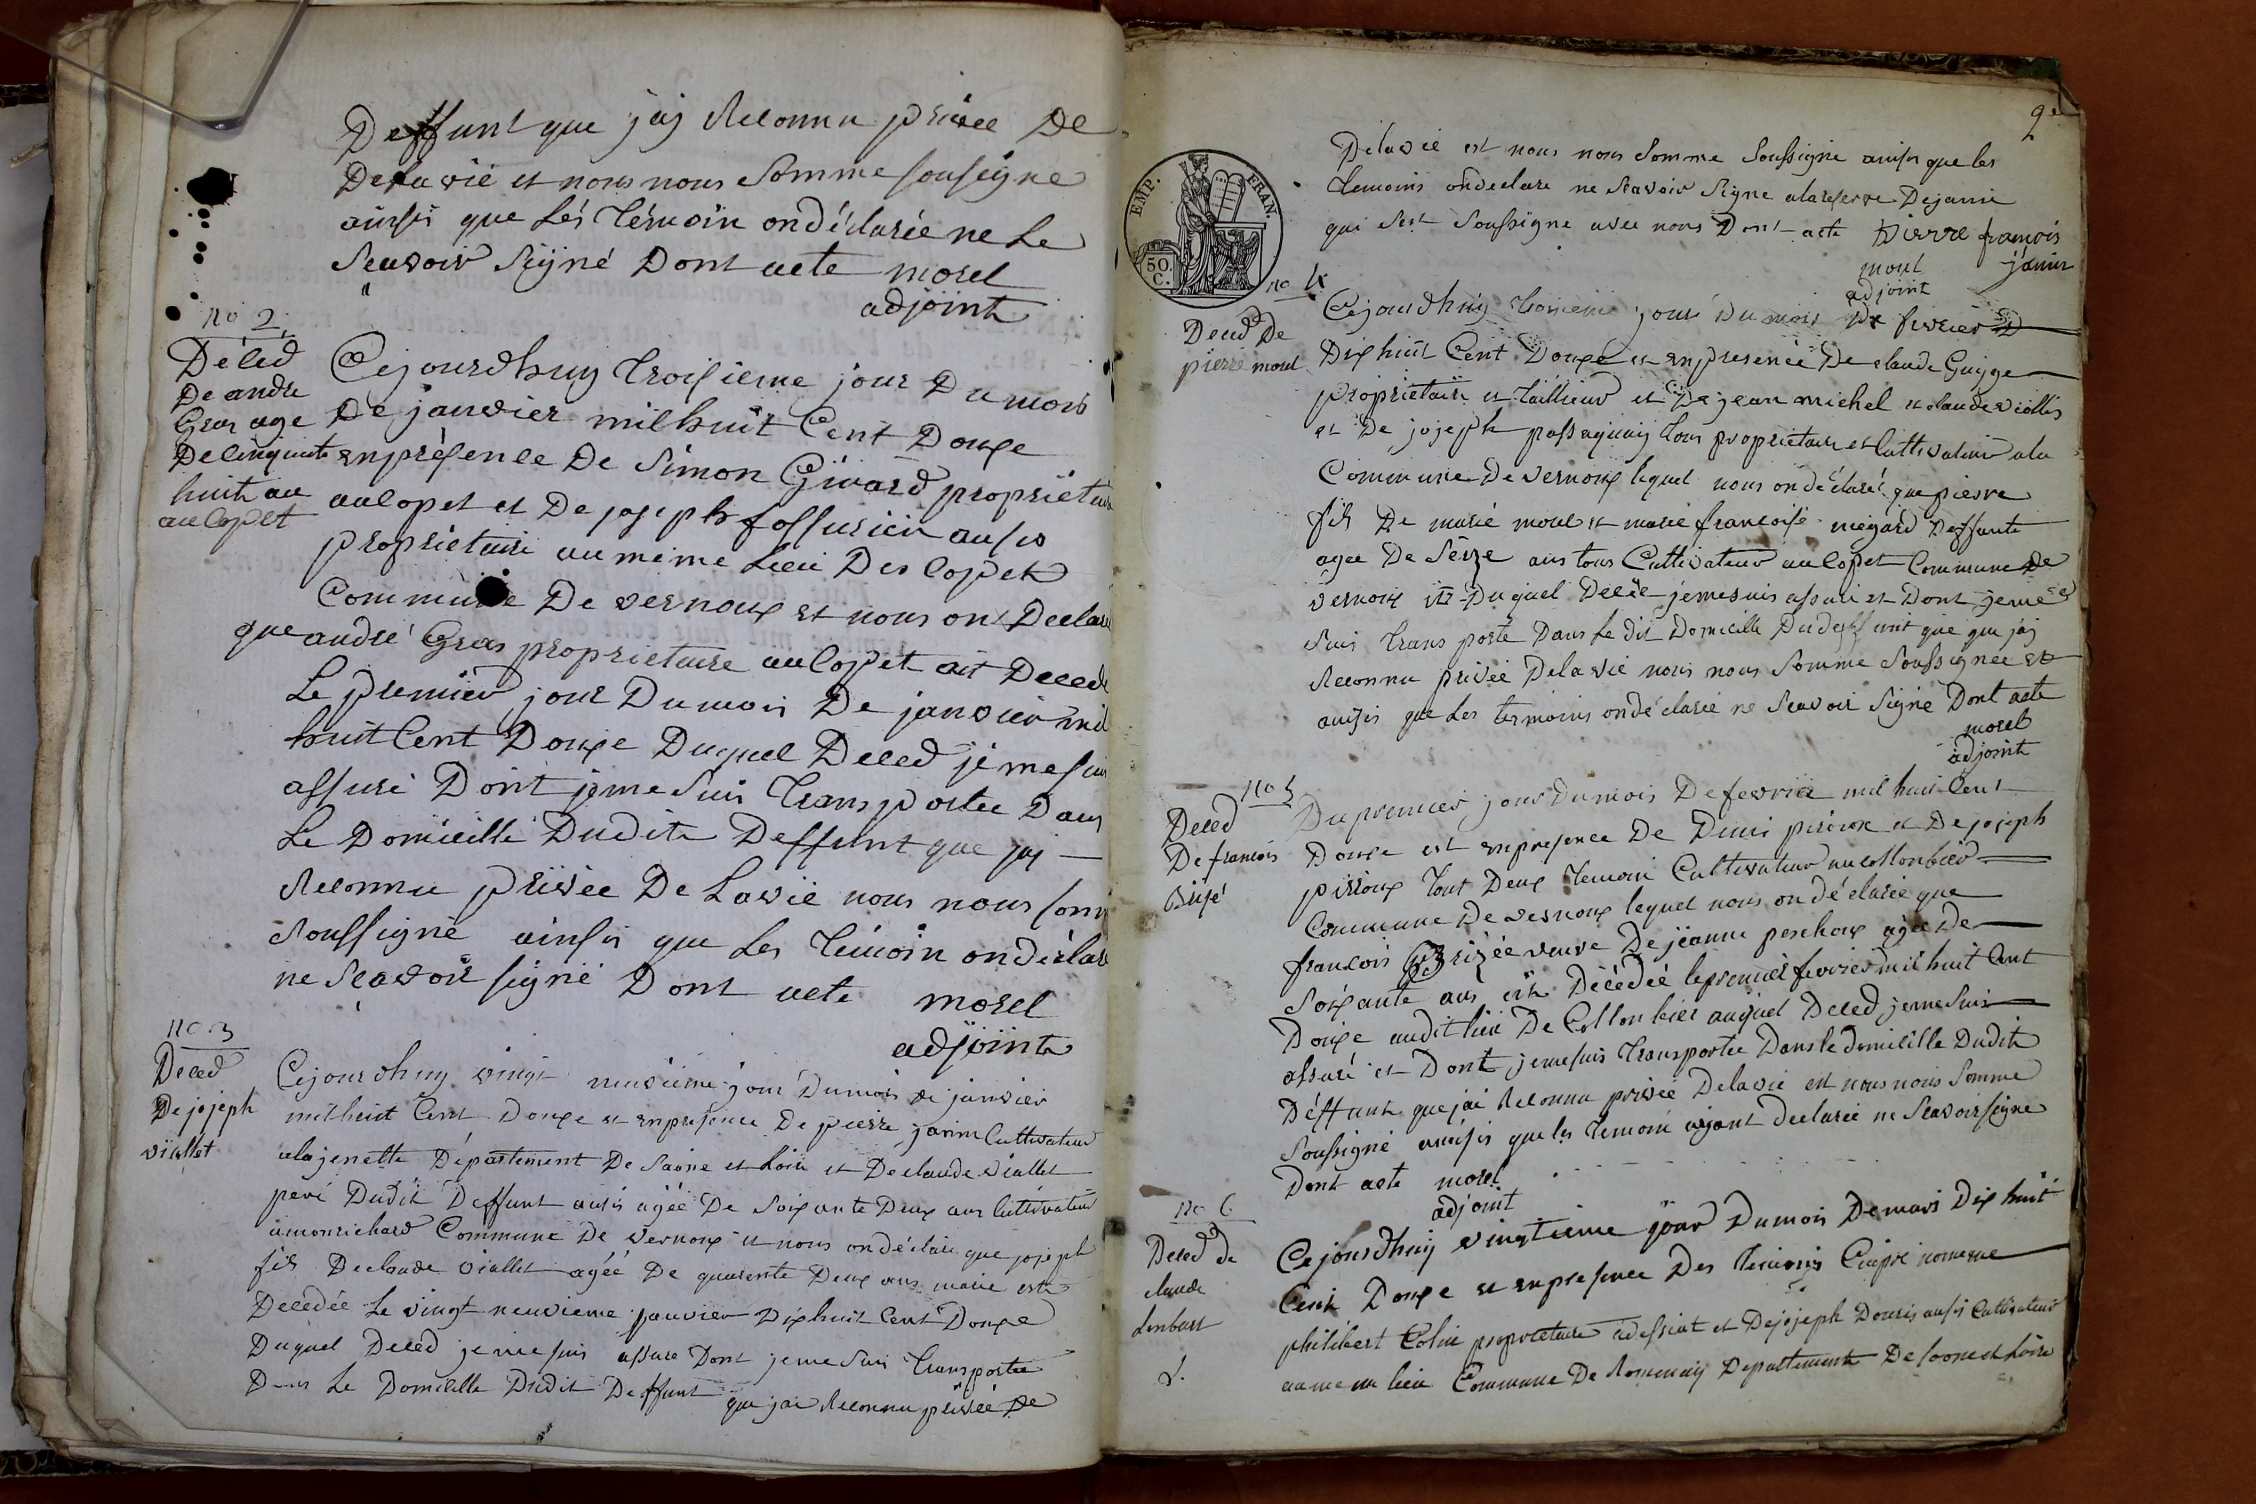 Deffunt que jaj Reconnu privée De
De la vië et nous nous Somme sousigné
ainsis que Lés Témoin on déclarée ne Le
Seavoir Signé Dont acte morel
adjoint
no 2
Déced
De andré
Gras age
De cinquante
huit an
au Copet
Cejourdhuy troisieme jour Du mois
De janvier mil huit Cent Douze
en présence De Simon Givard propriétaire
au Copet et De joseph fossurier ausis
propriétaire au meme Lieu Des Copet
Commune De vernoux et nous on Déclaré
que andré Gras proprietaire au Copet ait Décedé
Le premier jour Du mois De janvier mil
huit Cent Douze Duquel Deced je me suis
assuré Dont je me Suis transportée Dans
Le Domicille Dudit Deffunt que jaj
Reconnu privée De La vië nous nous Somme
Soussigné ainsis que Les Témoin on déclaré
ne Seavoir signé Dont acte morel
adjoint
no 3
Deced
De joseph
viallet
Cejourdhuy vingt neuvieme jour Du mois de janvier
mil huit Cent Douze et en présence De pierre janin Cultivateur
ala jenette Département De Saone et Loire et De claude viallet
peré Dudit Deffunt ausis agée De Soixante Deux ans Cultivateur
a monrichard Commune De vernoux et nous on déclaré que joseph
fils De claude viallet agéé De quarente Deux ans marié est
Décédée Le vingt neuvieme janvier Dix huit Cent Douze
Duquel Deced je me suis assuré Dont je me Suis transportée
Dans Le Domicille Dudit Deffunt que jai Reconnu privée De
2e
De la vié est nous nous Somme Soussigné ainsis que les
temoins on déclaré ne Seavoir Signe ala reserve De janin
qui s'est Soussigne avec nous Dont acte pierre francois
janin
morel
adjoint
EMP. FRAN.
50. C.
no 4
Deced De
pierre morel
Cejourdhuy troisieme jour Du mois De fevrier
Dix huit Cent Douze et en presencé De claude Guyge
proprietaire et tailleur et De jean michel et claude viollis
et De joseph passaquaij tous proprietaire et Cultivateur ala
Commune De vernoux lequel nous on déclaré que pierre
fils De marié morel et marie francoise megard Deffunte
agee De Seize ans tous Cultivateur au Copet Commune De
vernoux Duquel Decéé je me suis assuré et Dont je me
Suis transporté Dans Le dit Domicille Du deffunt que que jaj
Reconnu privée De la vié nous nous Somme Soussignee et
ausis que Les temoins on déclarée ne Seavoir Signé Dont acte
morel
adjoint
no 5
Deced
De francois
Brisé
Du premier jour Du mois De fevrier mil huit Cent
Douze est en presence De Denis piroux et De joseph
pirroux tout Deux temoin Cultivateur au Collonbier
Commune De vernoux lequel nous on déclarée que
francois Brizée veuve De jéanne perchoux agée De
Soixante ans est Décédéé le premier fevrier mil huit Cent
Douze audit lieu De Collonbier auquel Deced je me Suis
assuré et Dont je me suis transportée Dans le Domicille Dudit
Déffunt que jai Reconnu privée De la vié est nous nous Somme
Soussigné ainsis que les temoin aijant declarée ne Seavoir signé
Dont acte morel
adjoint
no 6
Deced de
claude
L.
Ce jourdhuij vingtieme jour Du mois De mars Dix huit
Cent Douze et en presence Des temoins Ciapré nomme
philibert Colin proprietaire et De joseph Douris ausis Cultivateur
au meme lieu Commune De Romenaij Departement De Saone et Loire